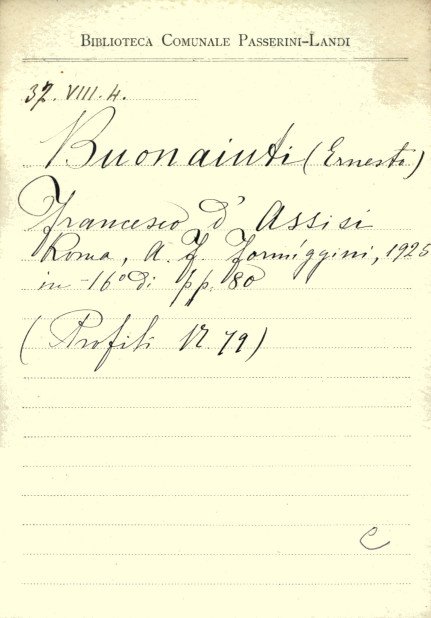 BIBLIOTECA COMUNALE PASSERINI-LANDI
37. VIII. 4.
Buonaiuti (Ernesto)
Francesco d' Assisi
Roma, A. F. Formiggini, 1925
in-16º di pp. 80
(Profili N. 79)
C